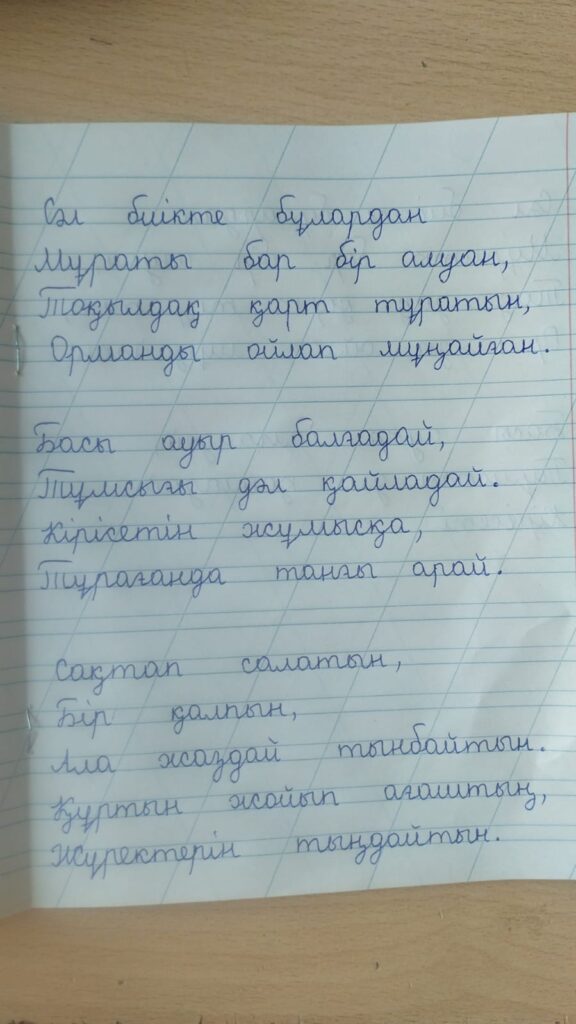 Сәл биікте бұлардан
Мұраты бар бір алуан,
Тоқылдақ қарт тұратын,
Орманды ойлап мұңайған.
Басы ауыр балғадай,
Тұмсығы дәл қайладай.
Кірісетін жұмысқа,
Тұрағанда таңғы арай.
Сақтап салатын,
Бір қалпын,
Ала жаздай тынбайтын.
Құртын жойып ағаштың,
Жүректерін тыңдайтын.